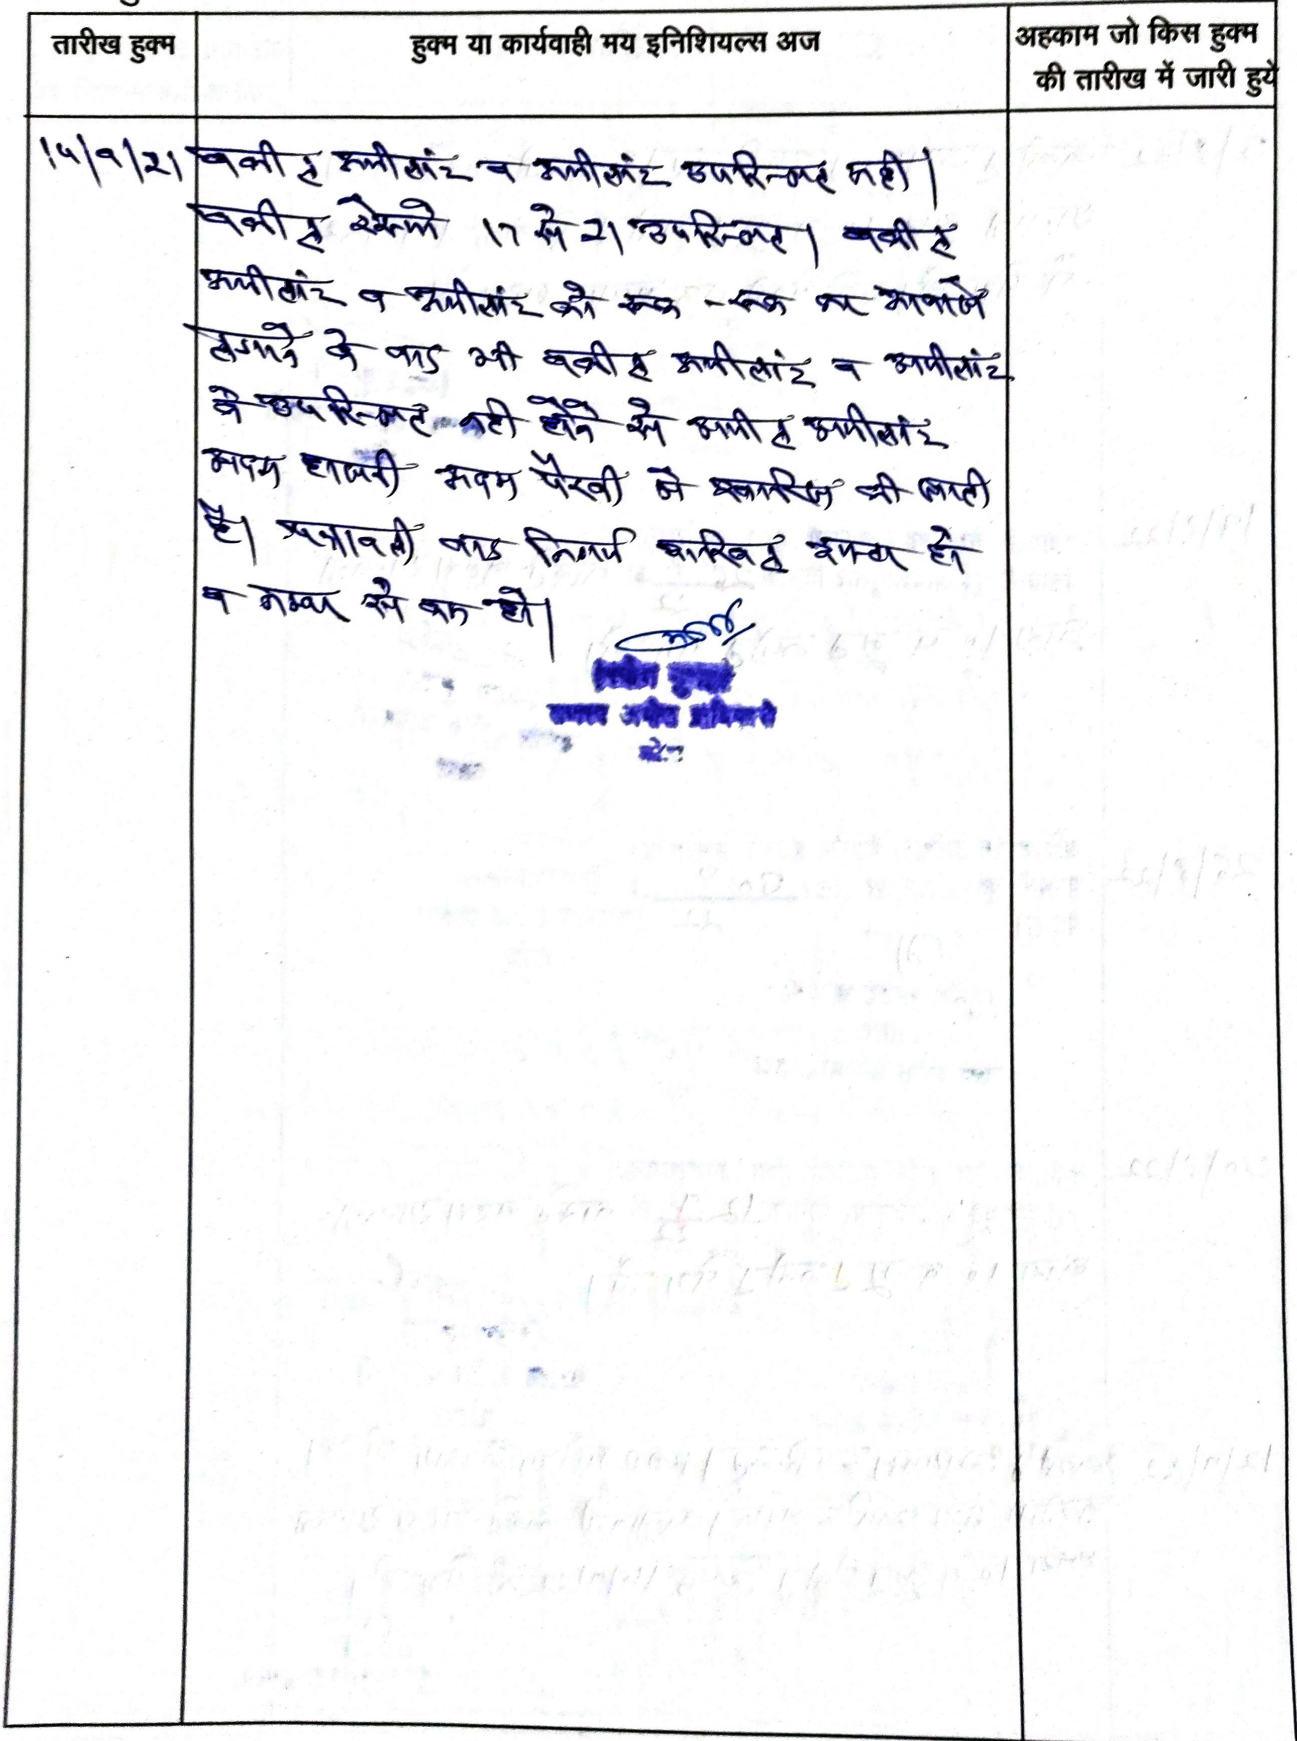 तारीख हुक्म
हुक्म या कार्यवाही मय इनिशियल्स अज
अहकाम जो किस हुक्म
की तारीख में जारी हुये
वकील अपीलांट व अपीलांट उपस्थित नही।
वकील रेस्पो 17 से 21 उपस्थित। वकील
अपीलांट व अपीलांट को रूक-रूक कर आवाजे
लगाने के बाद भी वकील अपीलांट व अपीलांट
के उपस्थित नही होने से अपील अपीलांट
अदम हाजरी अदम पैरवी में खारिज की जाती
है। पत्रावली बाद निर्णय दाखिल दफ्तर हो
व नम्बर से कम हो।